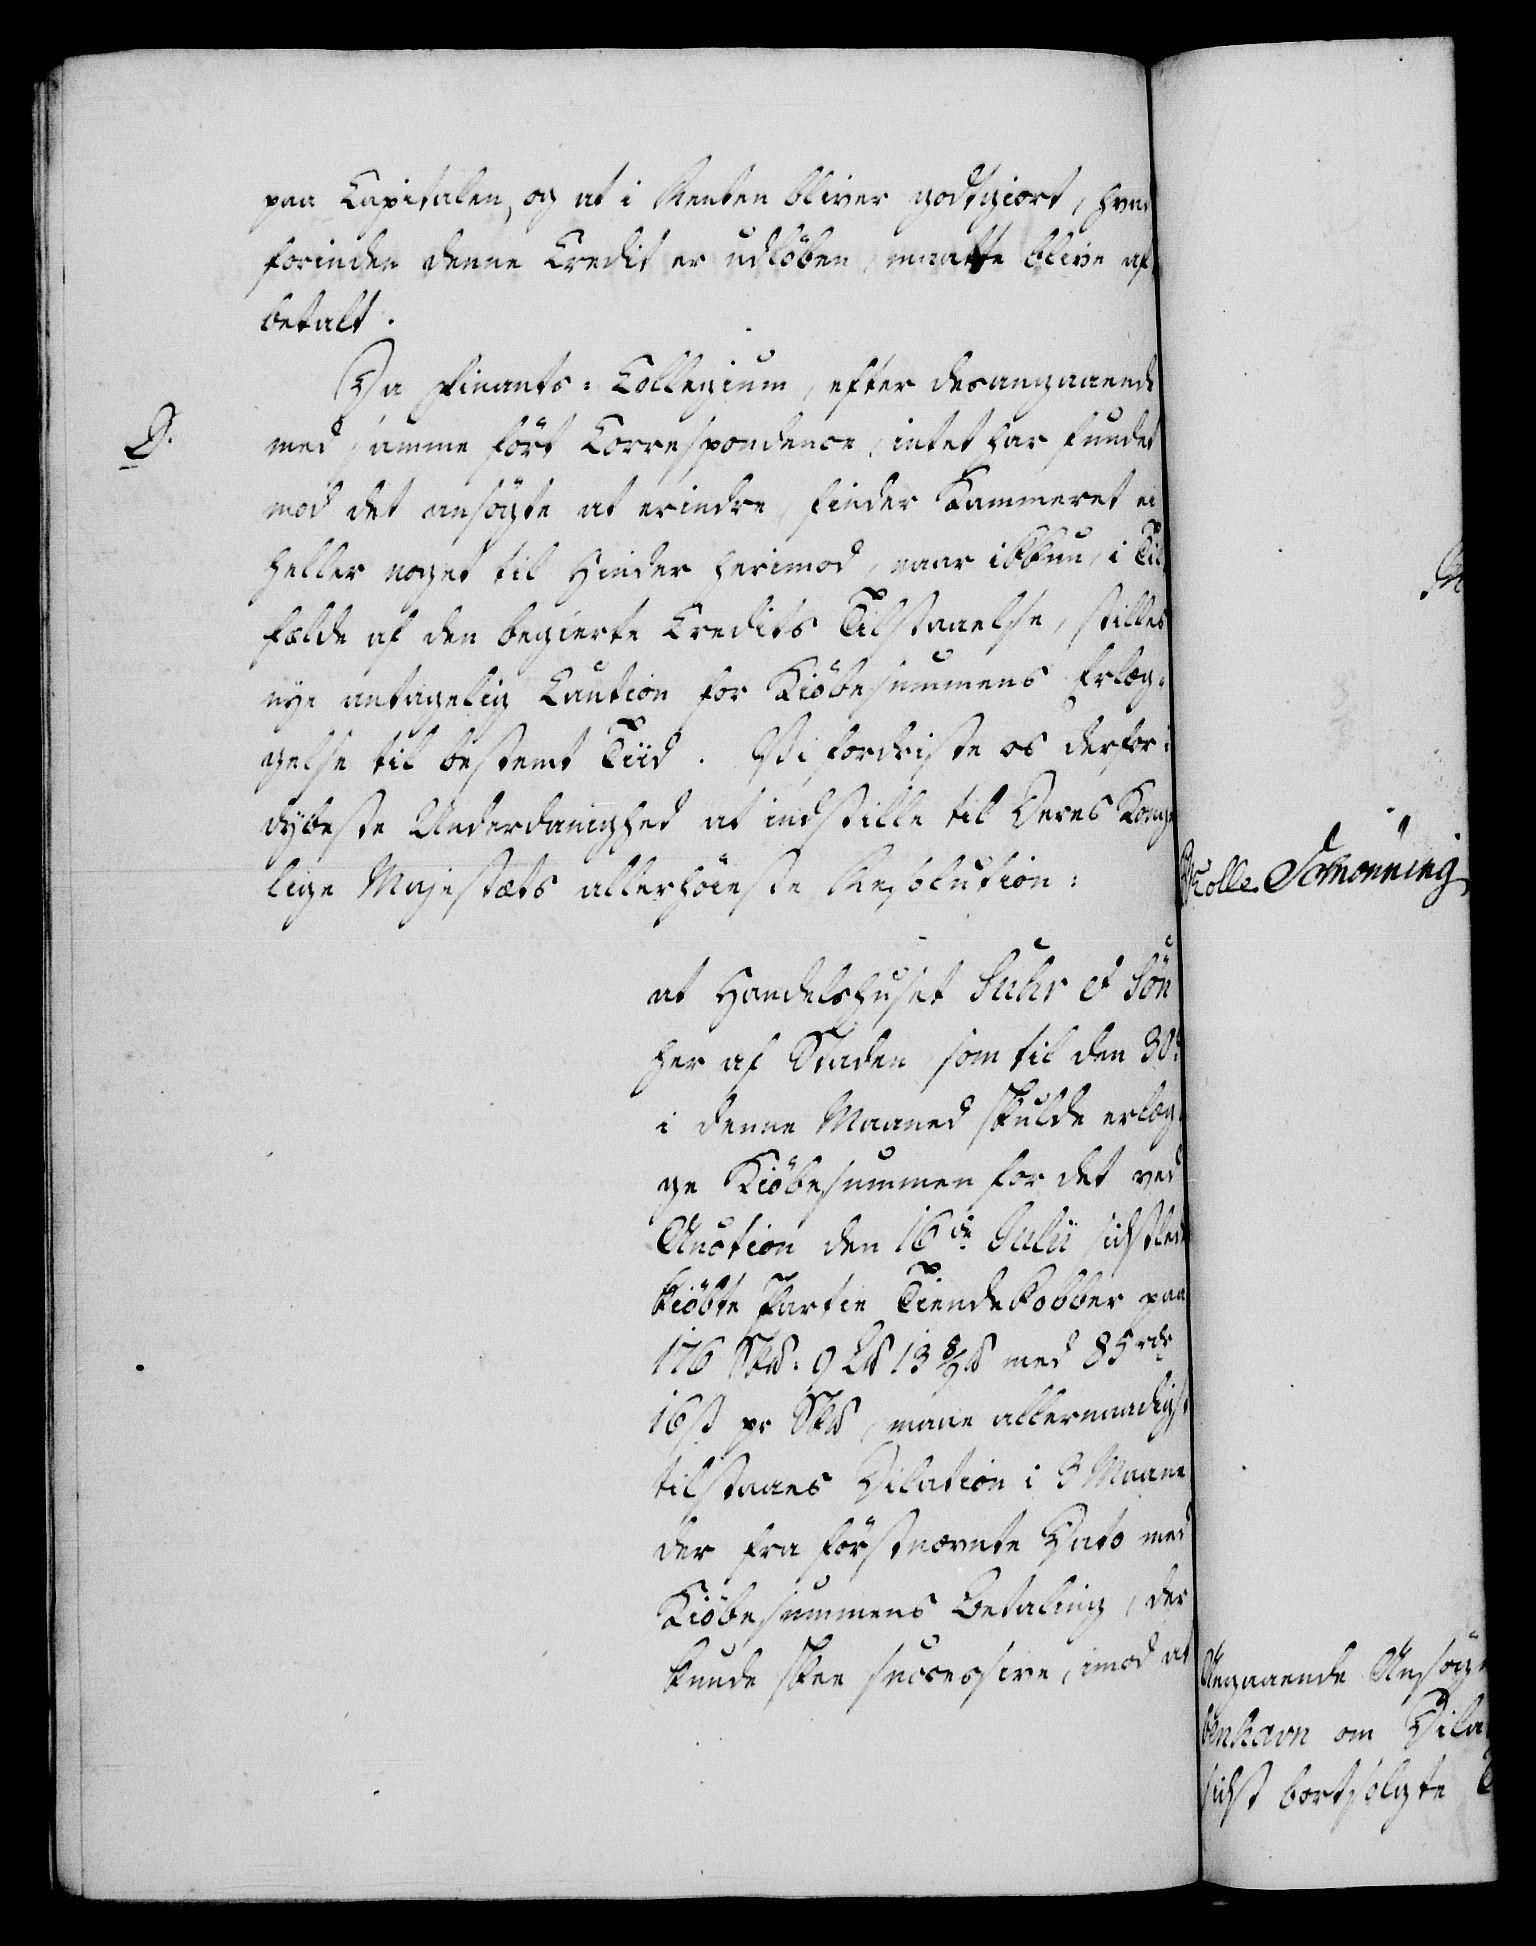 paa Capitalen, og at i Renten bliver godtgiort, hvad
forinden denne Credit er udløben, maatte blive af
betalt.
Da Finants-Collegium, efter desangaaende
D.
med samme ført Correspondence, intet har fundet
mod det ansøgte at erindre, finder Kammeret ei
heller noget til Hinder herimod, naar ikkun, i Til
fælde af den begierte Credits Tilstaaelse, stilles
nye antagelig Caution for Kiøbesummens Erlæg-
gelse til bestemt Tiid. Vi fordriste os derfor i
dybeste Underdanighed at indstille til Deres Konge
lige Majestæts allerhøieste Resolution:
at Handelshuset Suhr & Søn
her af Staden, som til den 30
i denne Maaned skulde erlæg
ge Kiøbesummen for det ved
Auction den 16de Julii sidstled
kiøbte Partie Tiende Kobber paa
176 Sk℔. 9 L℔ 13 8/9 ℔ med 85 rdr
16 ß pr Sk℔, maae allernaadigst
tilstaaes Dilation i 3 Maane
der fra førstnævnte Dato med
Kiøbesummens Betaling, der
kunde skee successive, imod at
Schønning
Angaaende Ansøgn
benhavn om Dila
sidst bortsolgte T